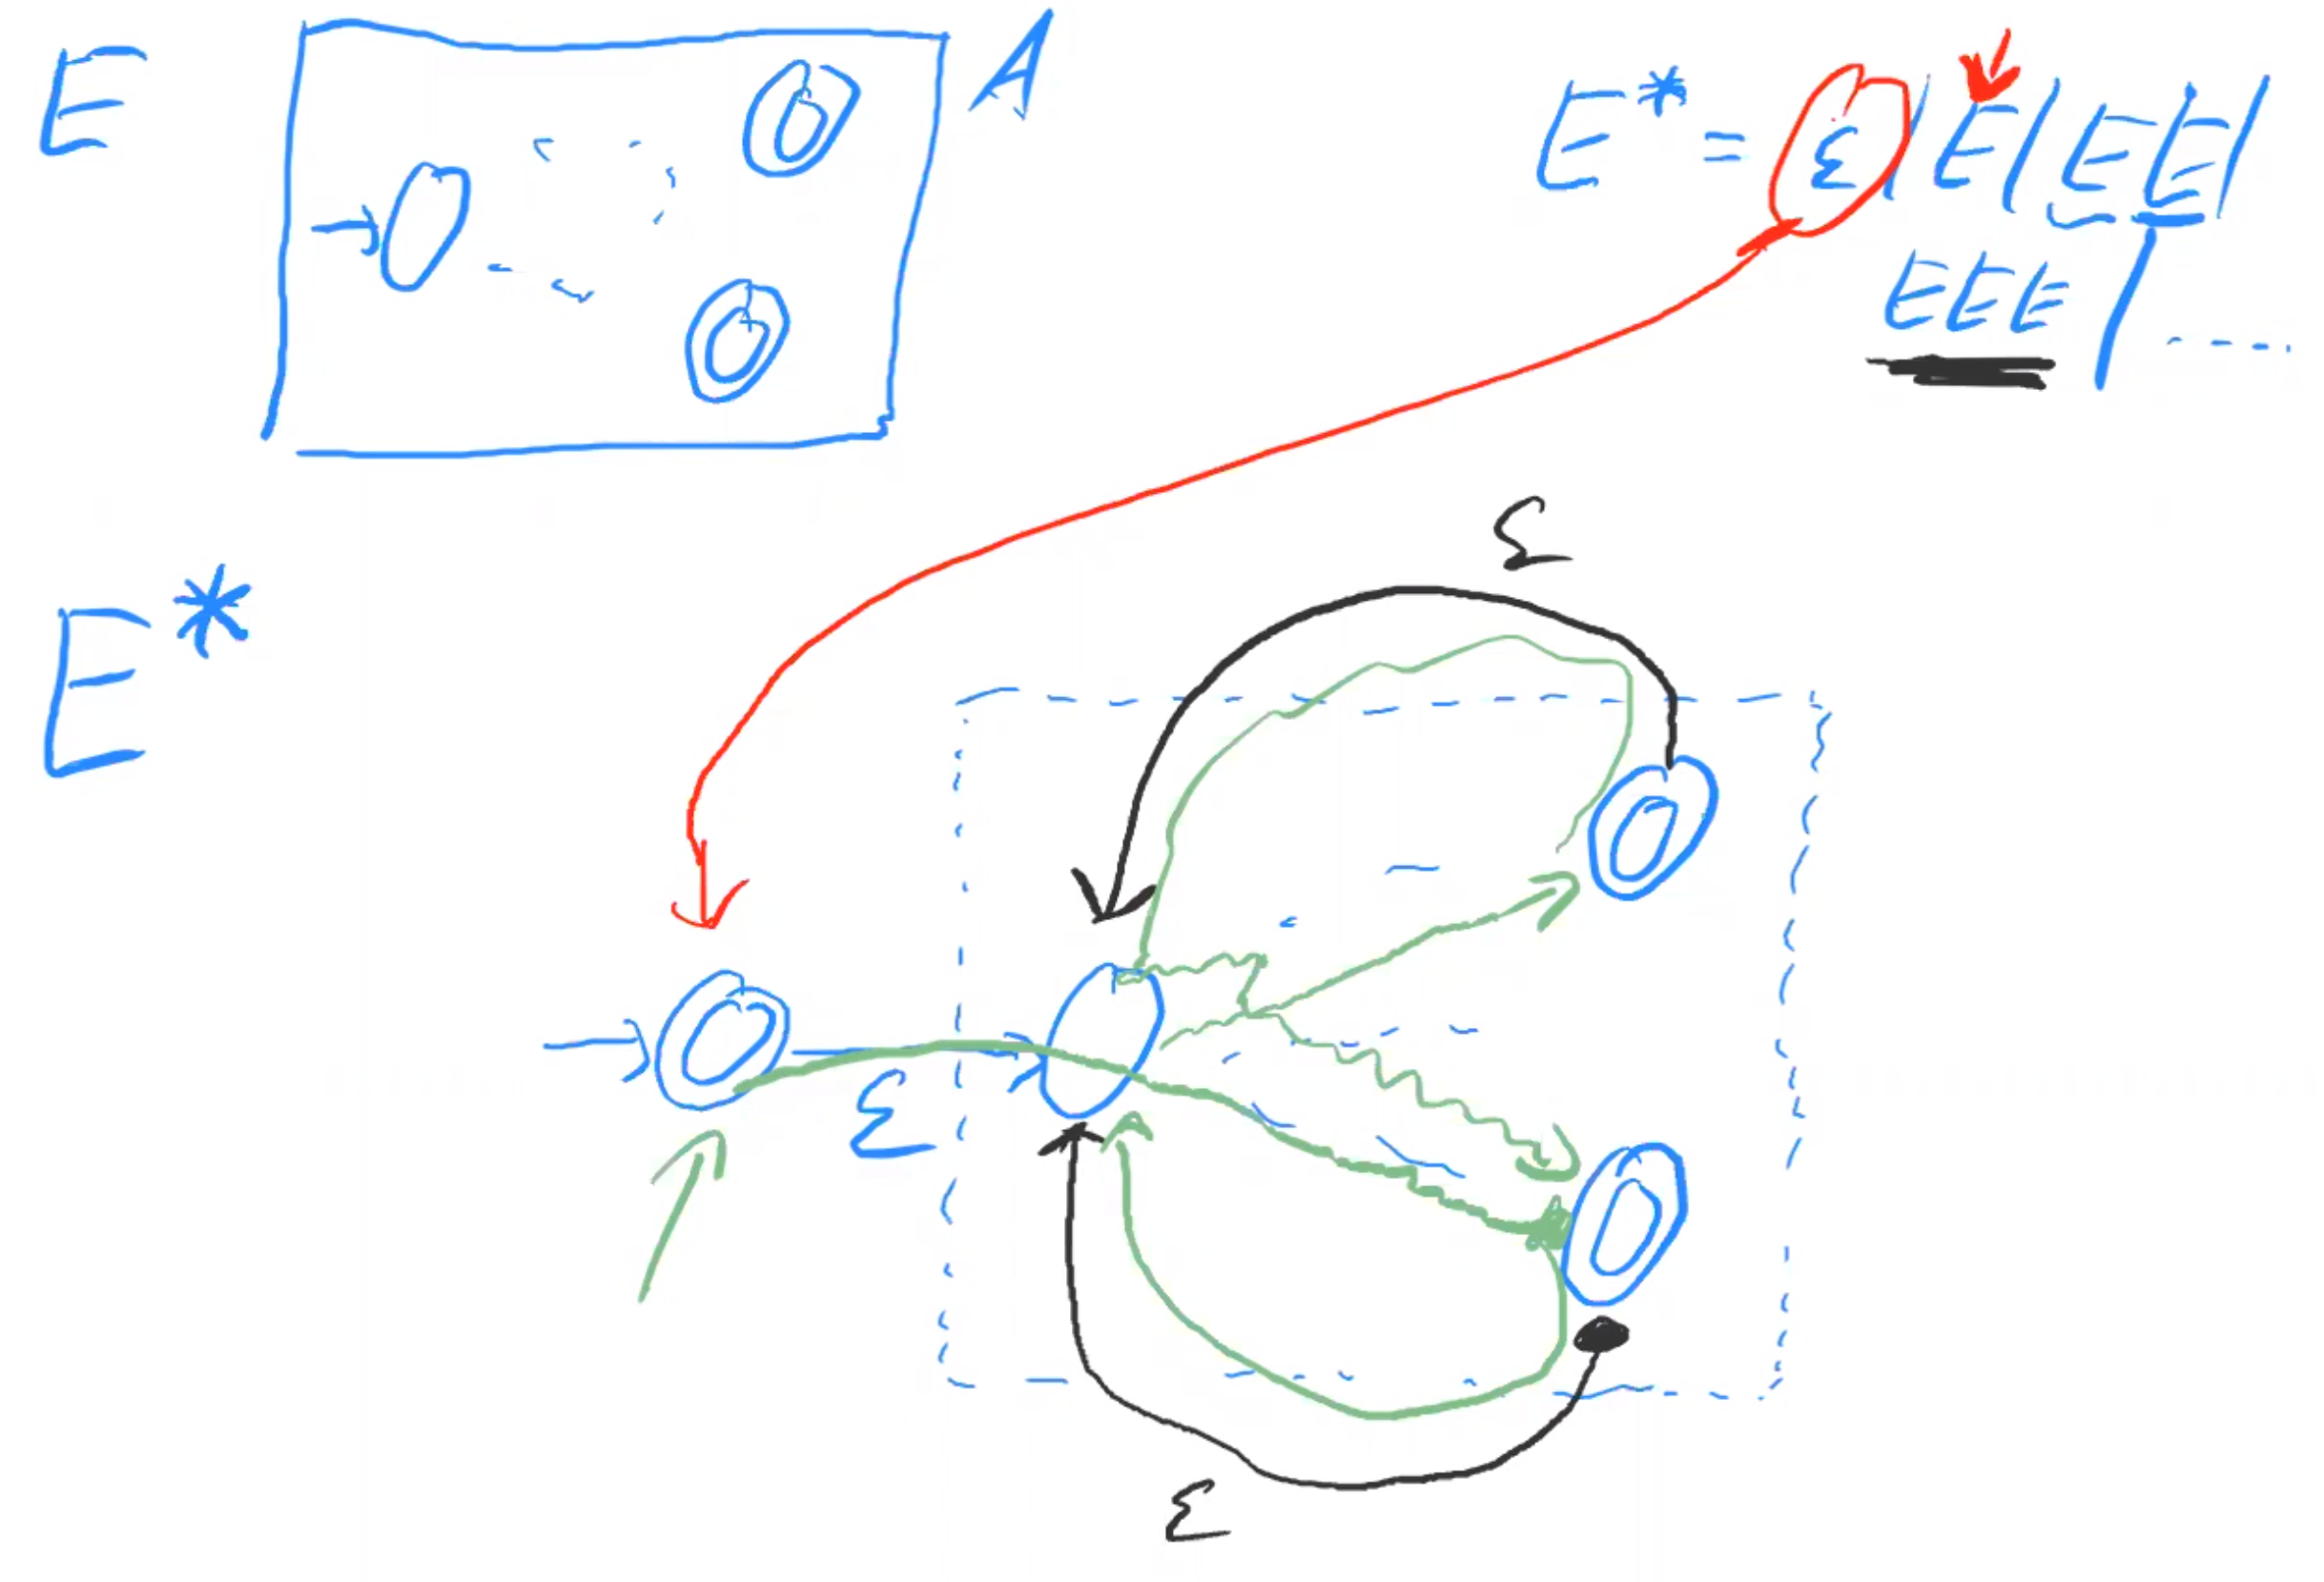 E
A
E* = ε | E | EE |
EEE | .....
E*
ε
ε
ε